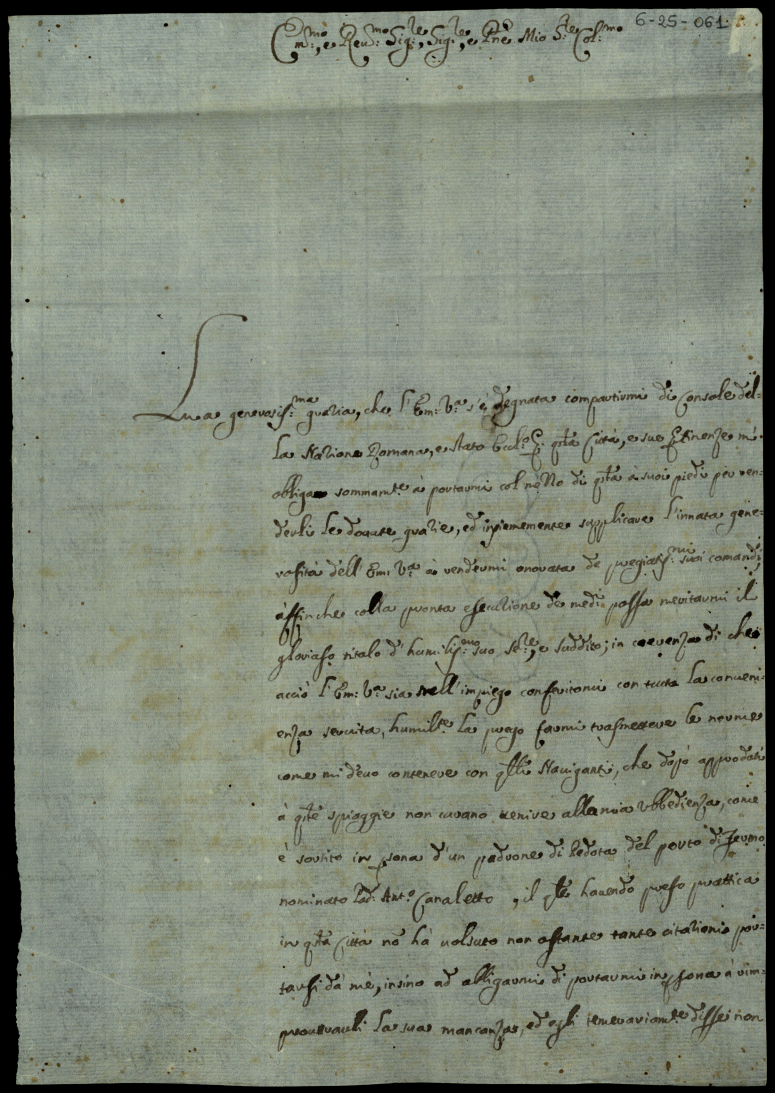 6-25-061
Em:mo, e Reu:mo Sig:re, Sig:re, e Pne Mio S:re Col:mo
La generosiss:ma grazia, che l'Em: V:a s'è degnata compartirmi di Console del-
la Nazione Romana, e stato Eccl:o p: q:ta Città, e sue ptinenze mi
obliga sommam:te à portarmi col mezzo di q:ta à suoi piedi per ren-
derli le douute grazie, ed insiememente supplicare l'innata gene-
rosità dell'Em: V:a a rendermi onorato de pregiatiss:mi suoi comandi,
affinche colla pronta esecutione de medmi possa meritarmi il
glorioso titolo d'humiliss:mo suo Se:re, e suddito; in coerenza di che
acciò l'Em: V:a sia nell'impiego conferitomi con tutta la conueni-
enza seruita, humilte la prego farmi trasmettere le norme
come mi deuo contenere con q:lli Nauiganti, che dopò approdati
à q:te spiaggie non curano uenire alla mia Vbbedienza, come
è sortito in psona d'un padrone di del porto di Fermo
nominato Pad: Ant:o Canaletto, il q:le hauendo preso prattica
in q:ta Città nō hà uolsuto non ostante tante citationi por-
tarsi dà mè, insino ad obligarmi di portarmi in psona à rim-
prouerarli la sua mancanza, ed egli temerariam:te disse non